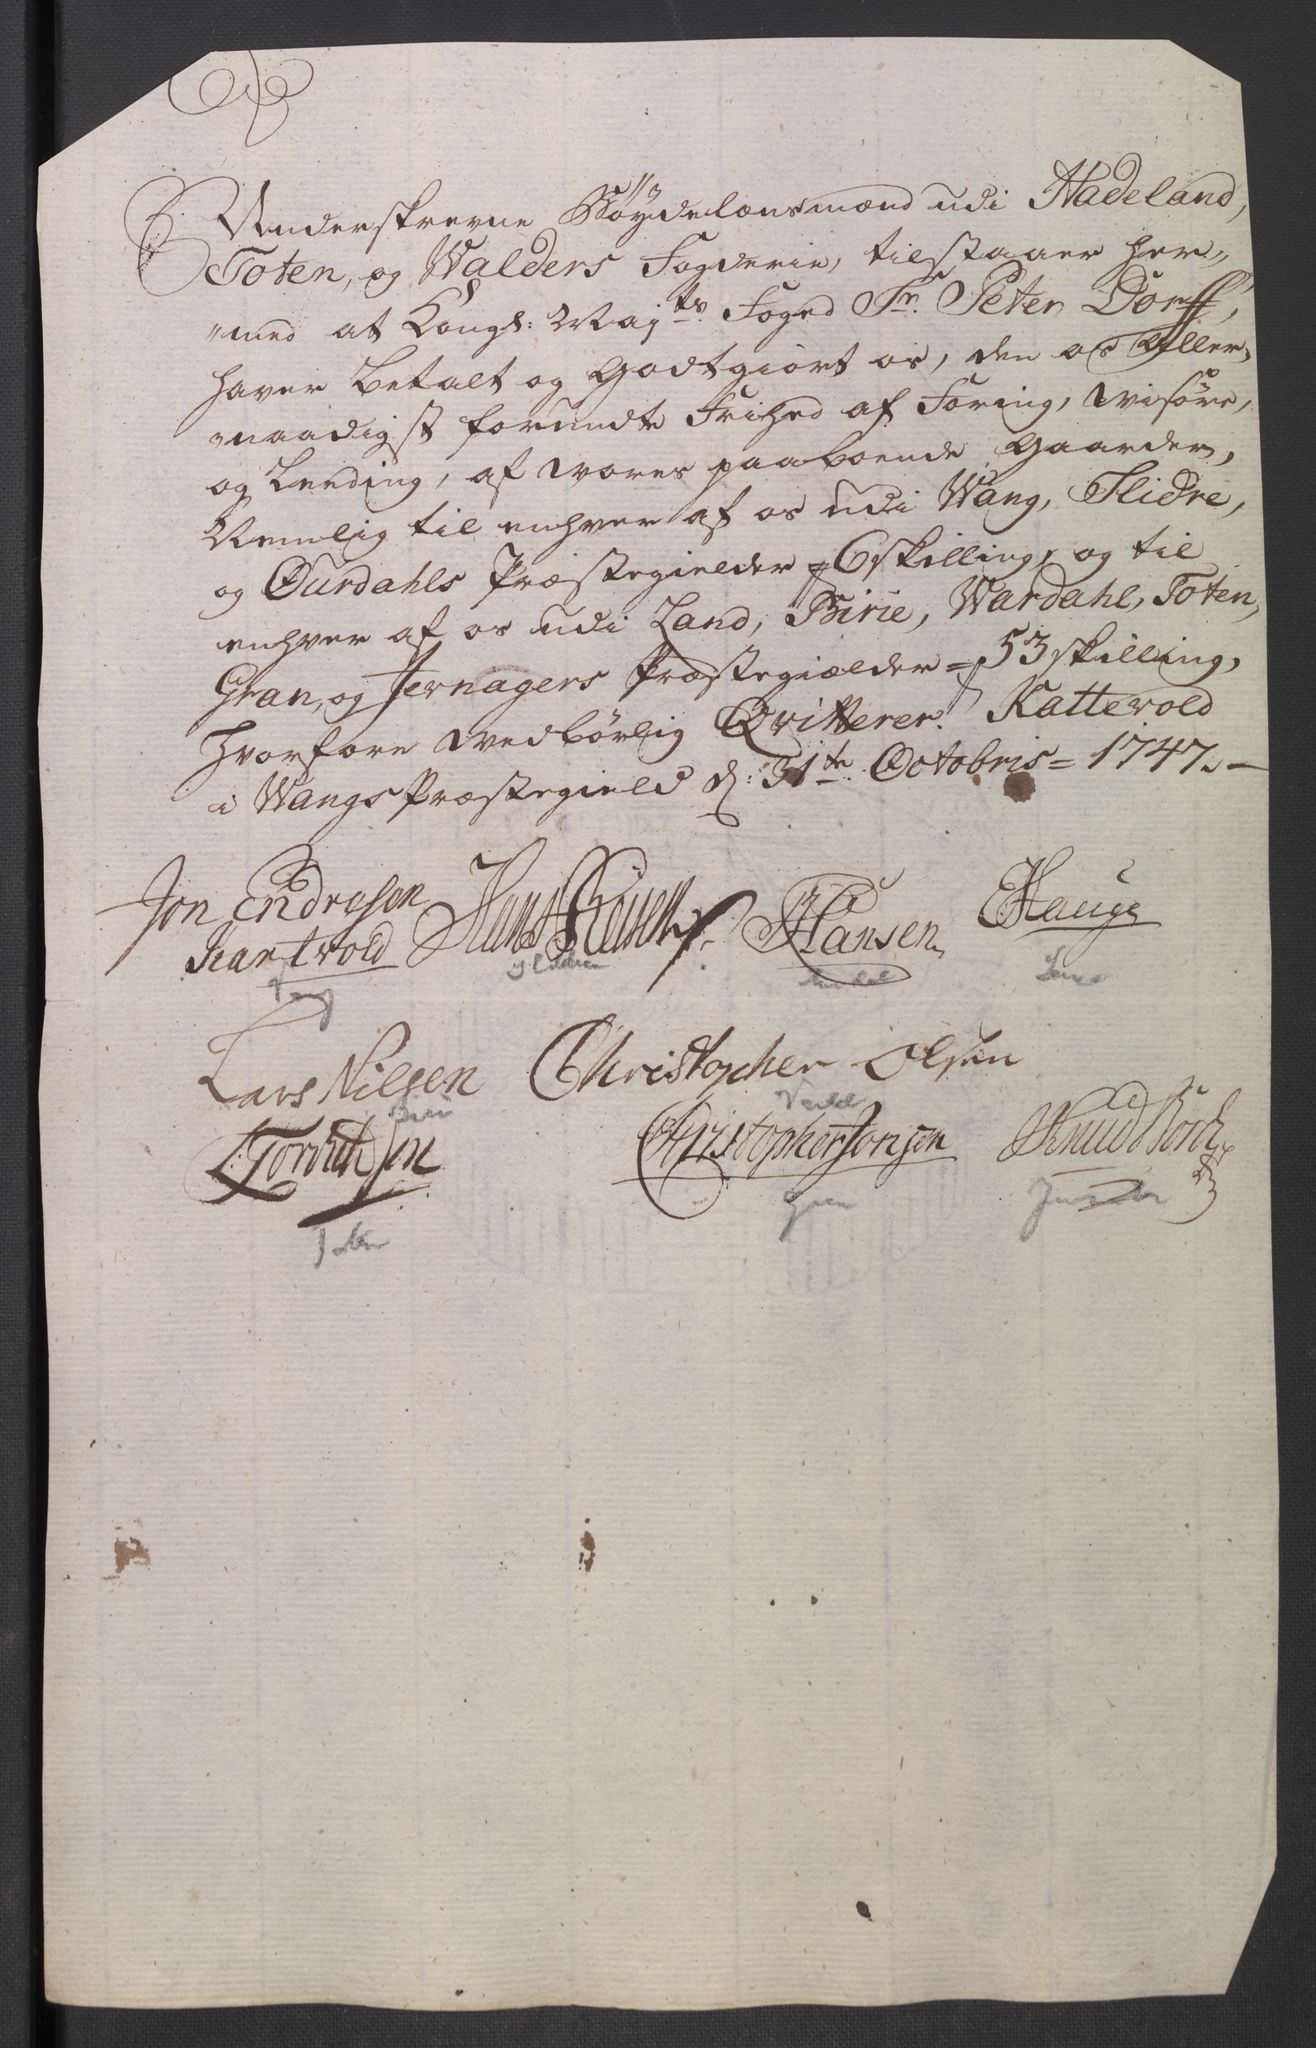 Underskrevne Bøÿdelænsmænd udi Hadeland,
Toten, og Walders Fogderie, tilstaaer her„
„med at Kongl: Maj:ts Foged Sr. Peter Dorff,
haver betalt og Godtgiort os, den os Aller„
„naadigst forundte Frihed af Foring, Wisøre,
og Leeding, af vores paaboende Gaarder,
Nemlig til enhver af os udi Wang, Slidre,
og Ourdahls Præstegielder = 6 skilling, og til
enhver af os udi Land, Birie, Wardahl, Toten,
Gran, og Jernagers Præstegiælder = 53 skilling,
hvorfore vedbørlig Qvitterer. Kattevold
i Wangs Præstegield d: 31te Octobris = 1747. —
Jon Endresen Hans HHansen EHauge
Kartvold
Wang Slidre Land
Lars Nilsen Christopher Olsen
Birie Vardal
LTorbiTsen Christopher Jonsen Knud Borch
Toten Gran Jevnaker